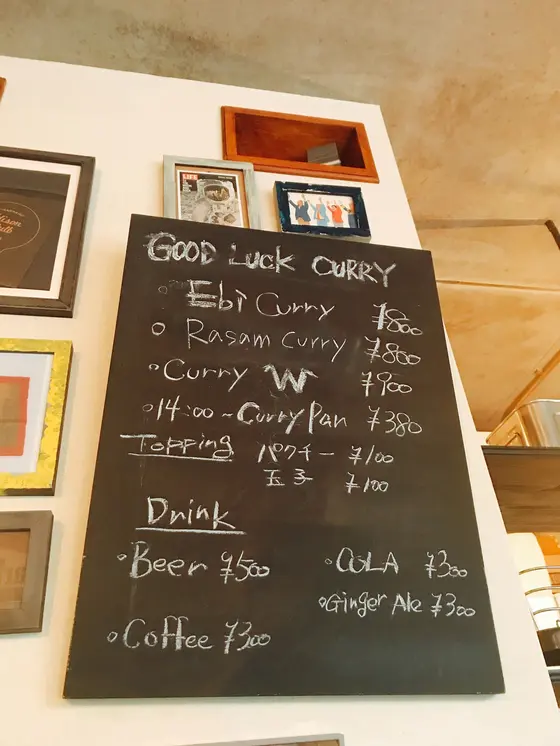 LIFE
GOOD LUCK CURRY
Ebi Curry ¥800
Rasam curry ¥800
Curry W ¥900
14:00~ Curry Pan ¥380
Topping パクチー ¥100
玉子 ¥100
Drink
Beer ¥500 COLA ¥300
Ginger Ale ¥300
Coffee ¥300